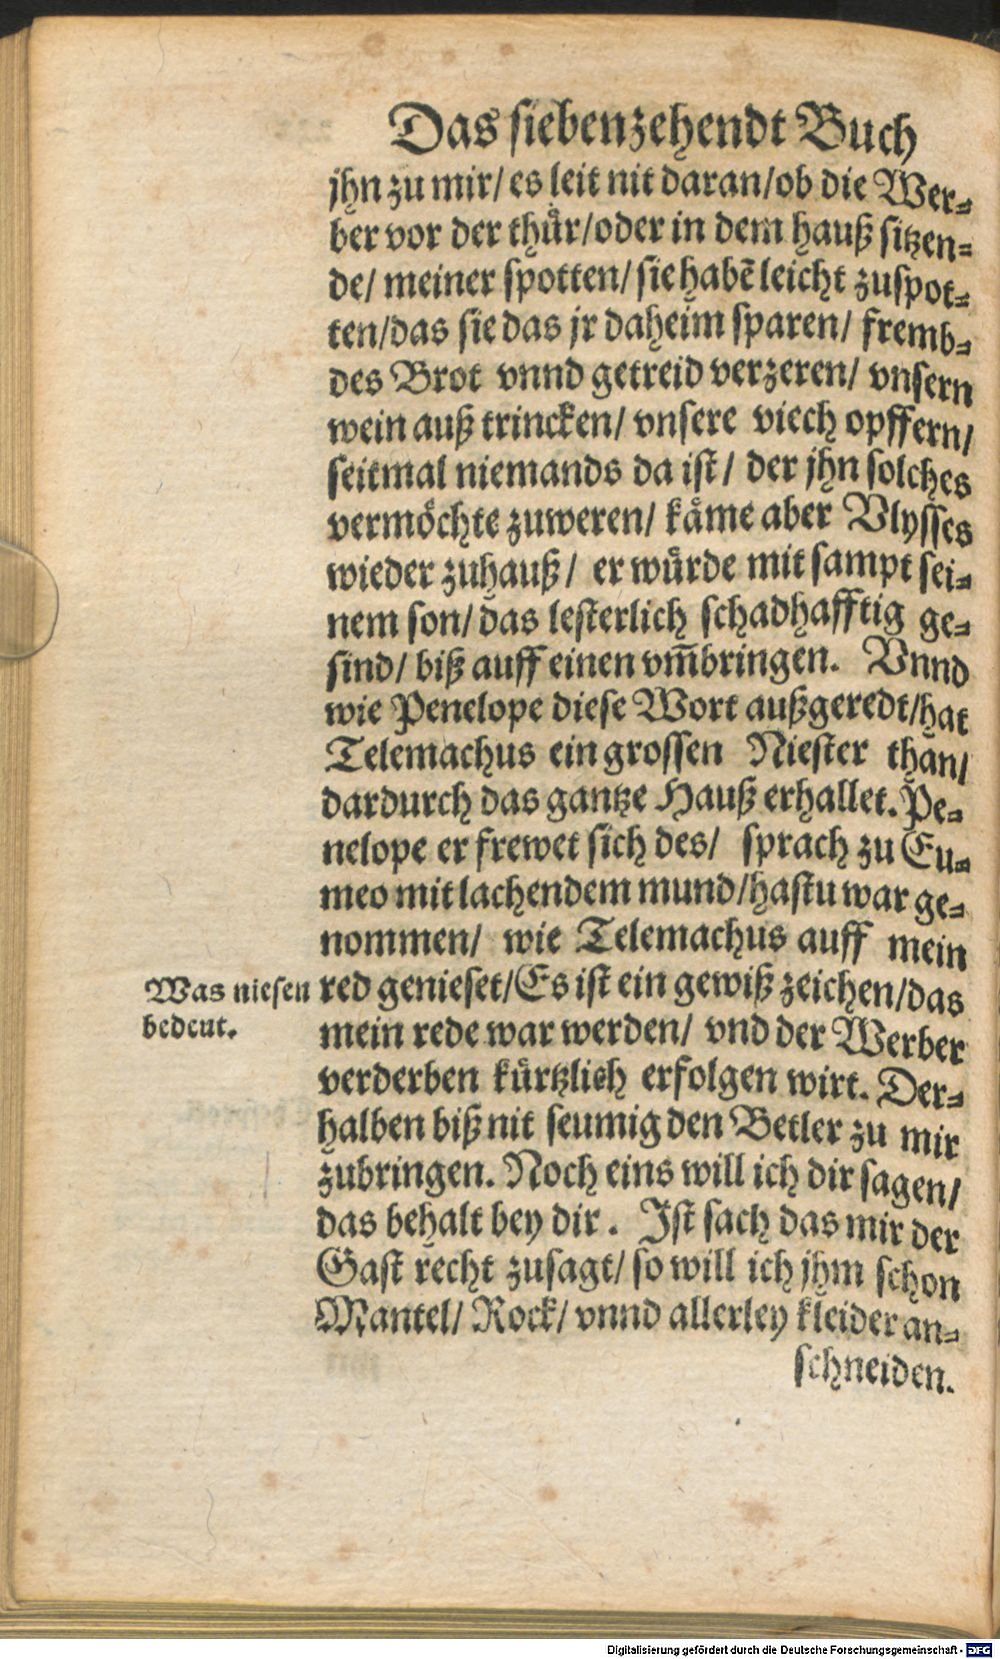 Das siebenzehendt Buch
jhn zu mir/ es leit nit daran/ob die Wer⸗
ber vor der thuͤr/oder in dem hauß sitzen⸗
de/ meiner spotten/ sie habẽ leicht zuspot⸗
ten/das sie das jr daheim sparen/ fremb⸗
des Brot vnnd getreid verzeren/ vnsern
wein auß trincken/ vnsere viech opffern/
seitmal niemands da ist/ der jhn solches
vermoͤchte zuweren/ kaͤme aber Vlysses
wieder zuhauß/ er wuͤrde mit sampt sei⸗
nem son/ das lesterlich schadhafftig ge⸗
sind/ biß auff einen vm̃bringen. Vnnd
wie Penelope diese Wort außgeredt/hat
Telemachus ein grossen Niester than/
dardurch das gantze Hauß erhallet. Pe⸗
nelope er frewet sich des/ sprach zu Eu⸗
meo mit lachendem mund/hastu war ge⸗
nommen/ wie Telemachus auff mein
Was niesen
bedeut.
red genieset/Es ist ein gewiß zeichen/das
mein rede war werden/ vnd der Werber
verderben kuͤrtzlich erfolgen wirt. Der⸗
halben biß nit seumig den Betler zu mir
zubringen. Noch eins will ich dir sagen/
das behalt bey dir. Ist sach das mir der
Gast recht zusagt/ so will ich jhm schon
Mantel/ Rock/ vnnd allerley kleider an⸗
schneiden.
Digitalisierung gefördert durch die Deutsche Forschungsgemeinschaft - DFG